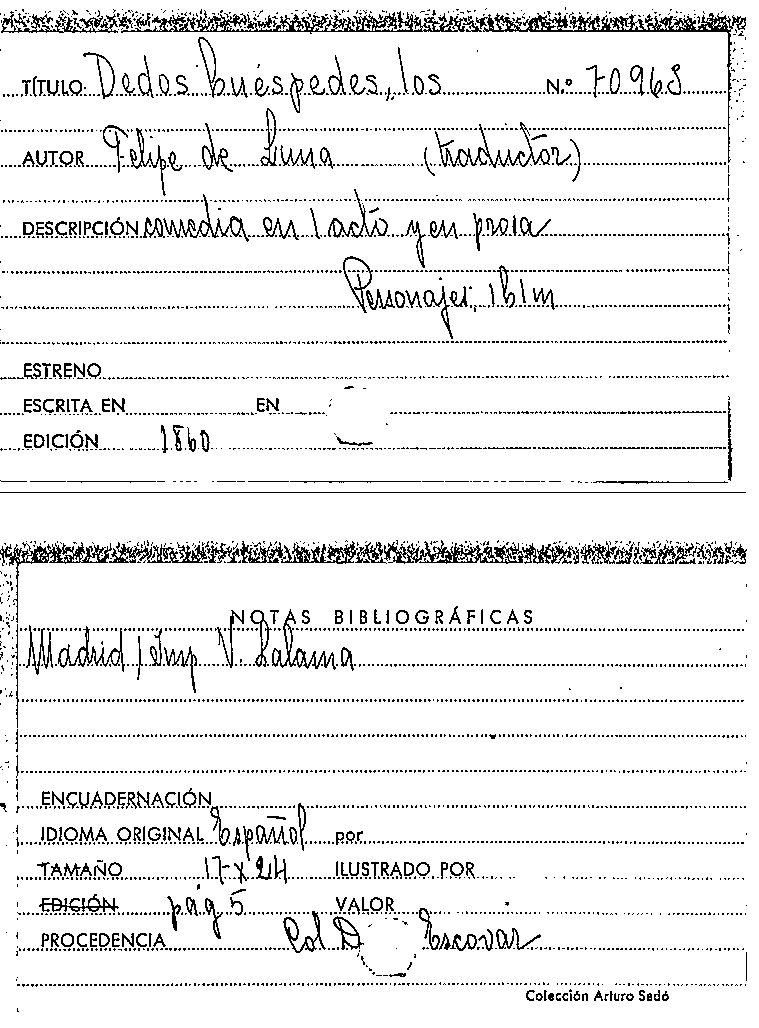 TÍTULO Dedos huéspedes, los N.º 70968
AUTOR Felipe de Luna (traductor)
DESCRIPCIÓN comedia en 1 acto y en prosa
Personajes, 1h1m
ESTRENO
ESCRITA EN EN
EDICIÓN 1860
NOTAS BIBLIOGRÁFICAS
Madrid / Imp V. Lalama
ENCUADERNACIÓN
IDIOMA ORIGINAL Español por
TAMAÑO 17 x 24 ILUSTRADO POR
EDICIÓN pág 5 VALOR
PROCEDENCIA Col D Escovar
Colección Arturo Sedó